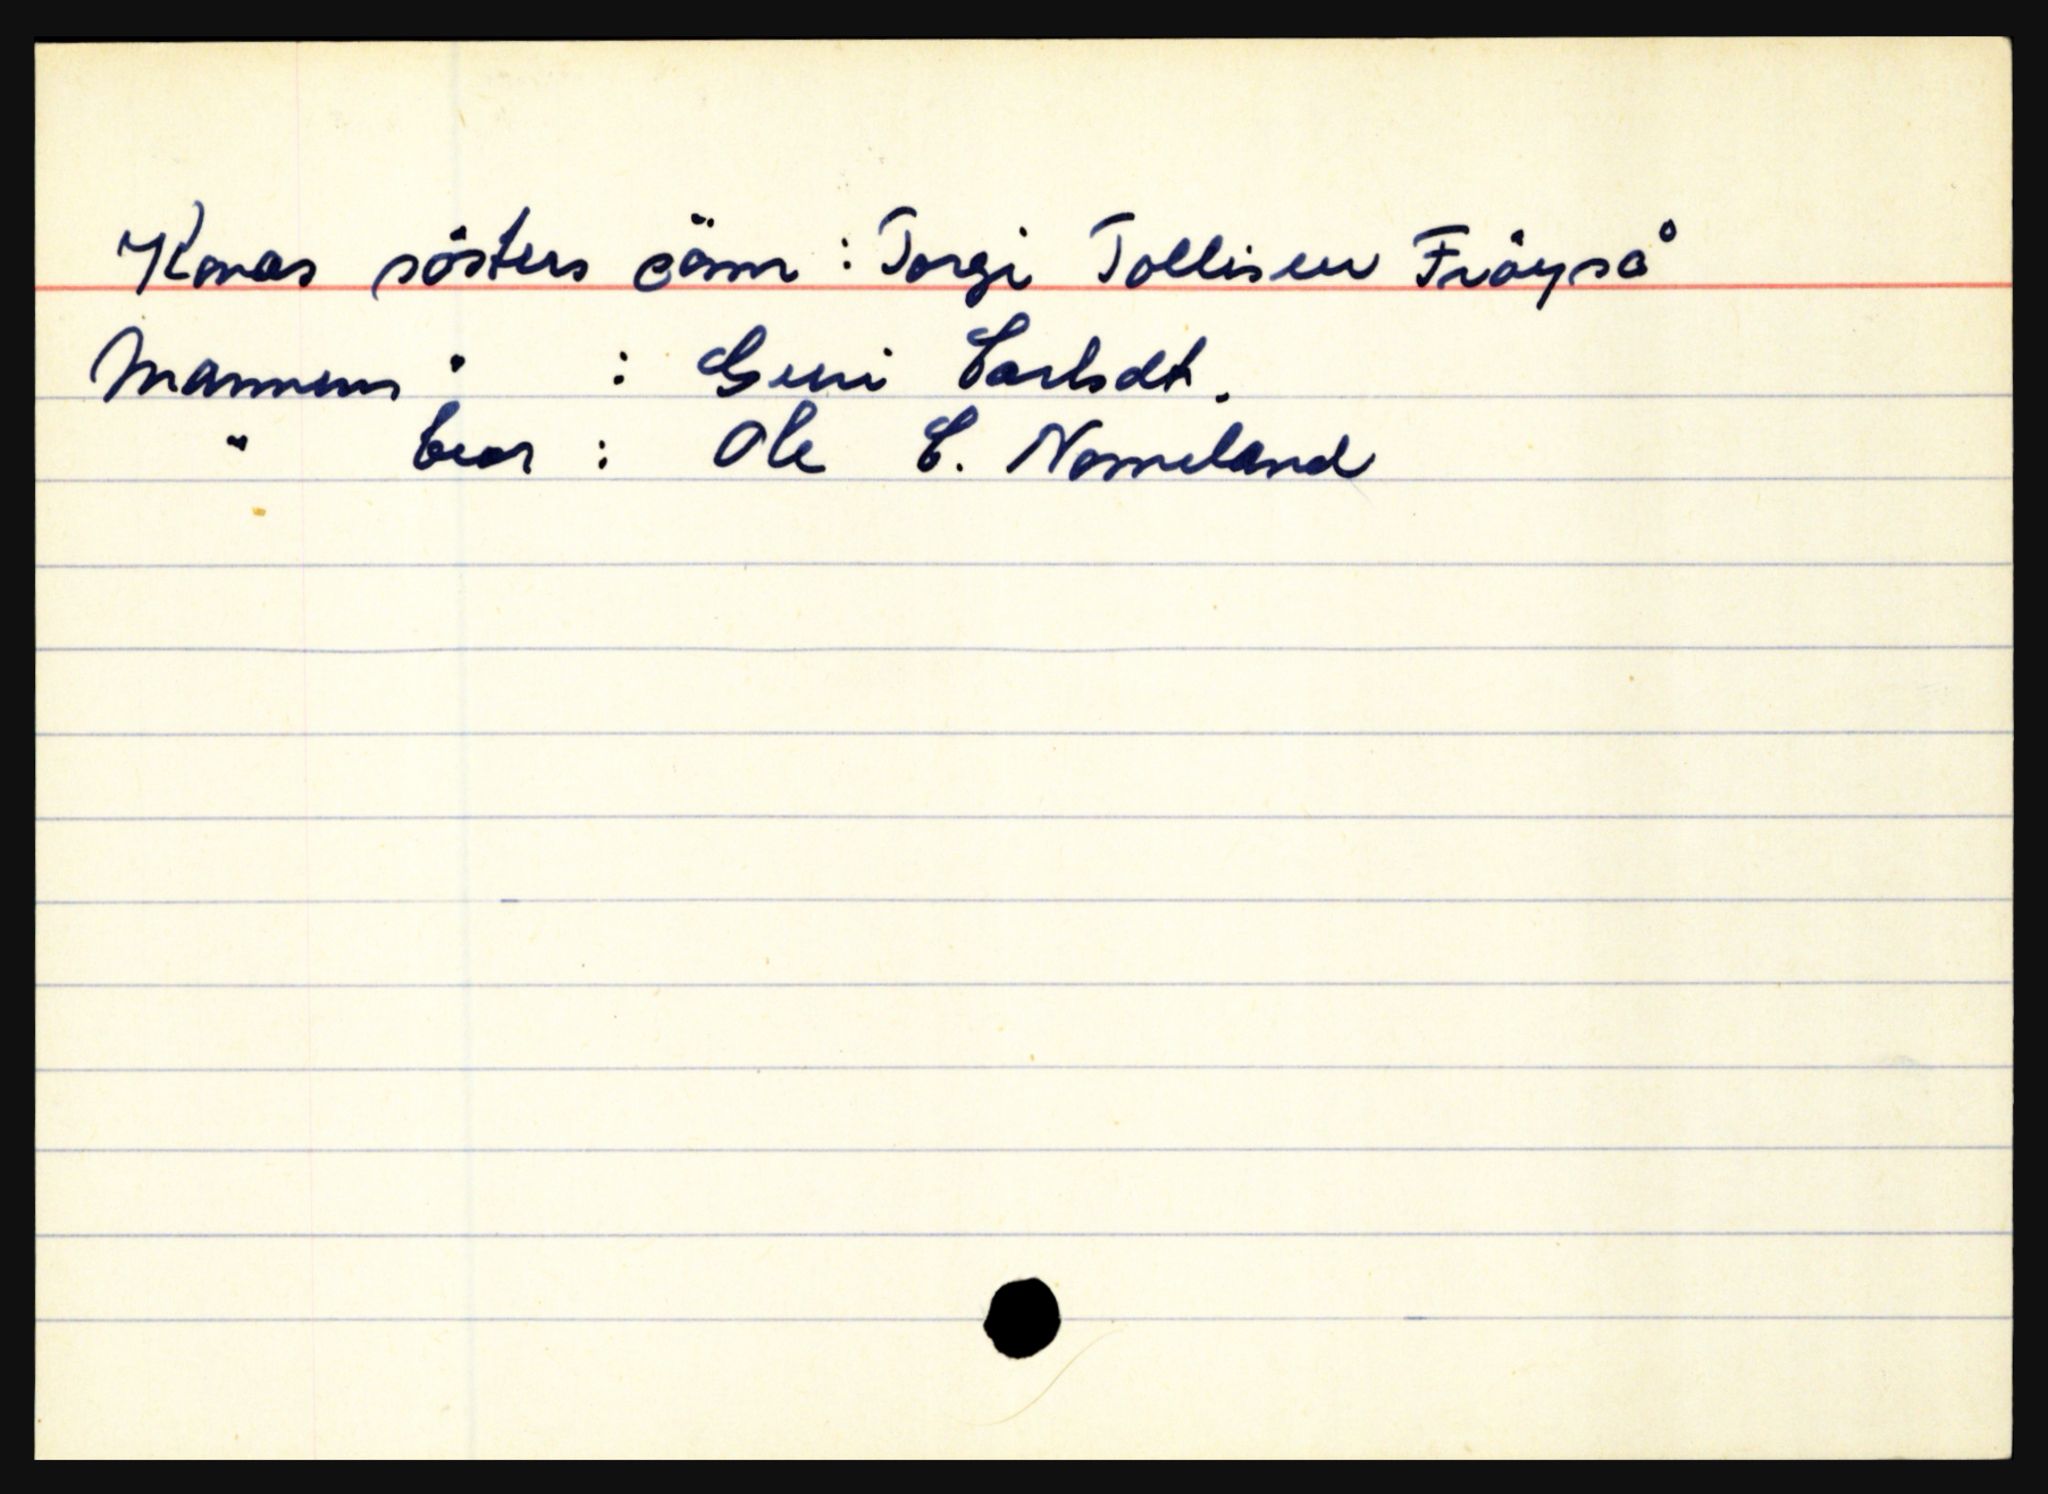 Konas sösters sönn : Torgi Tollisen Fröyså
Mannens " : Guri Carlsdt.
" bror : Ole C. Nomeland